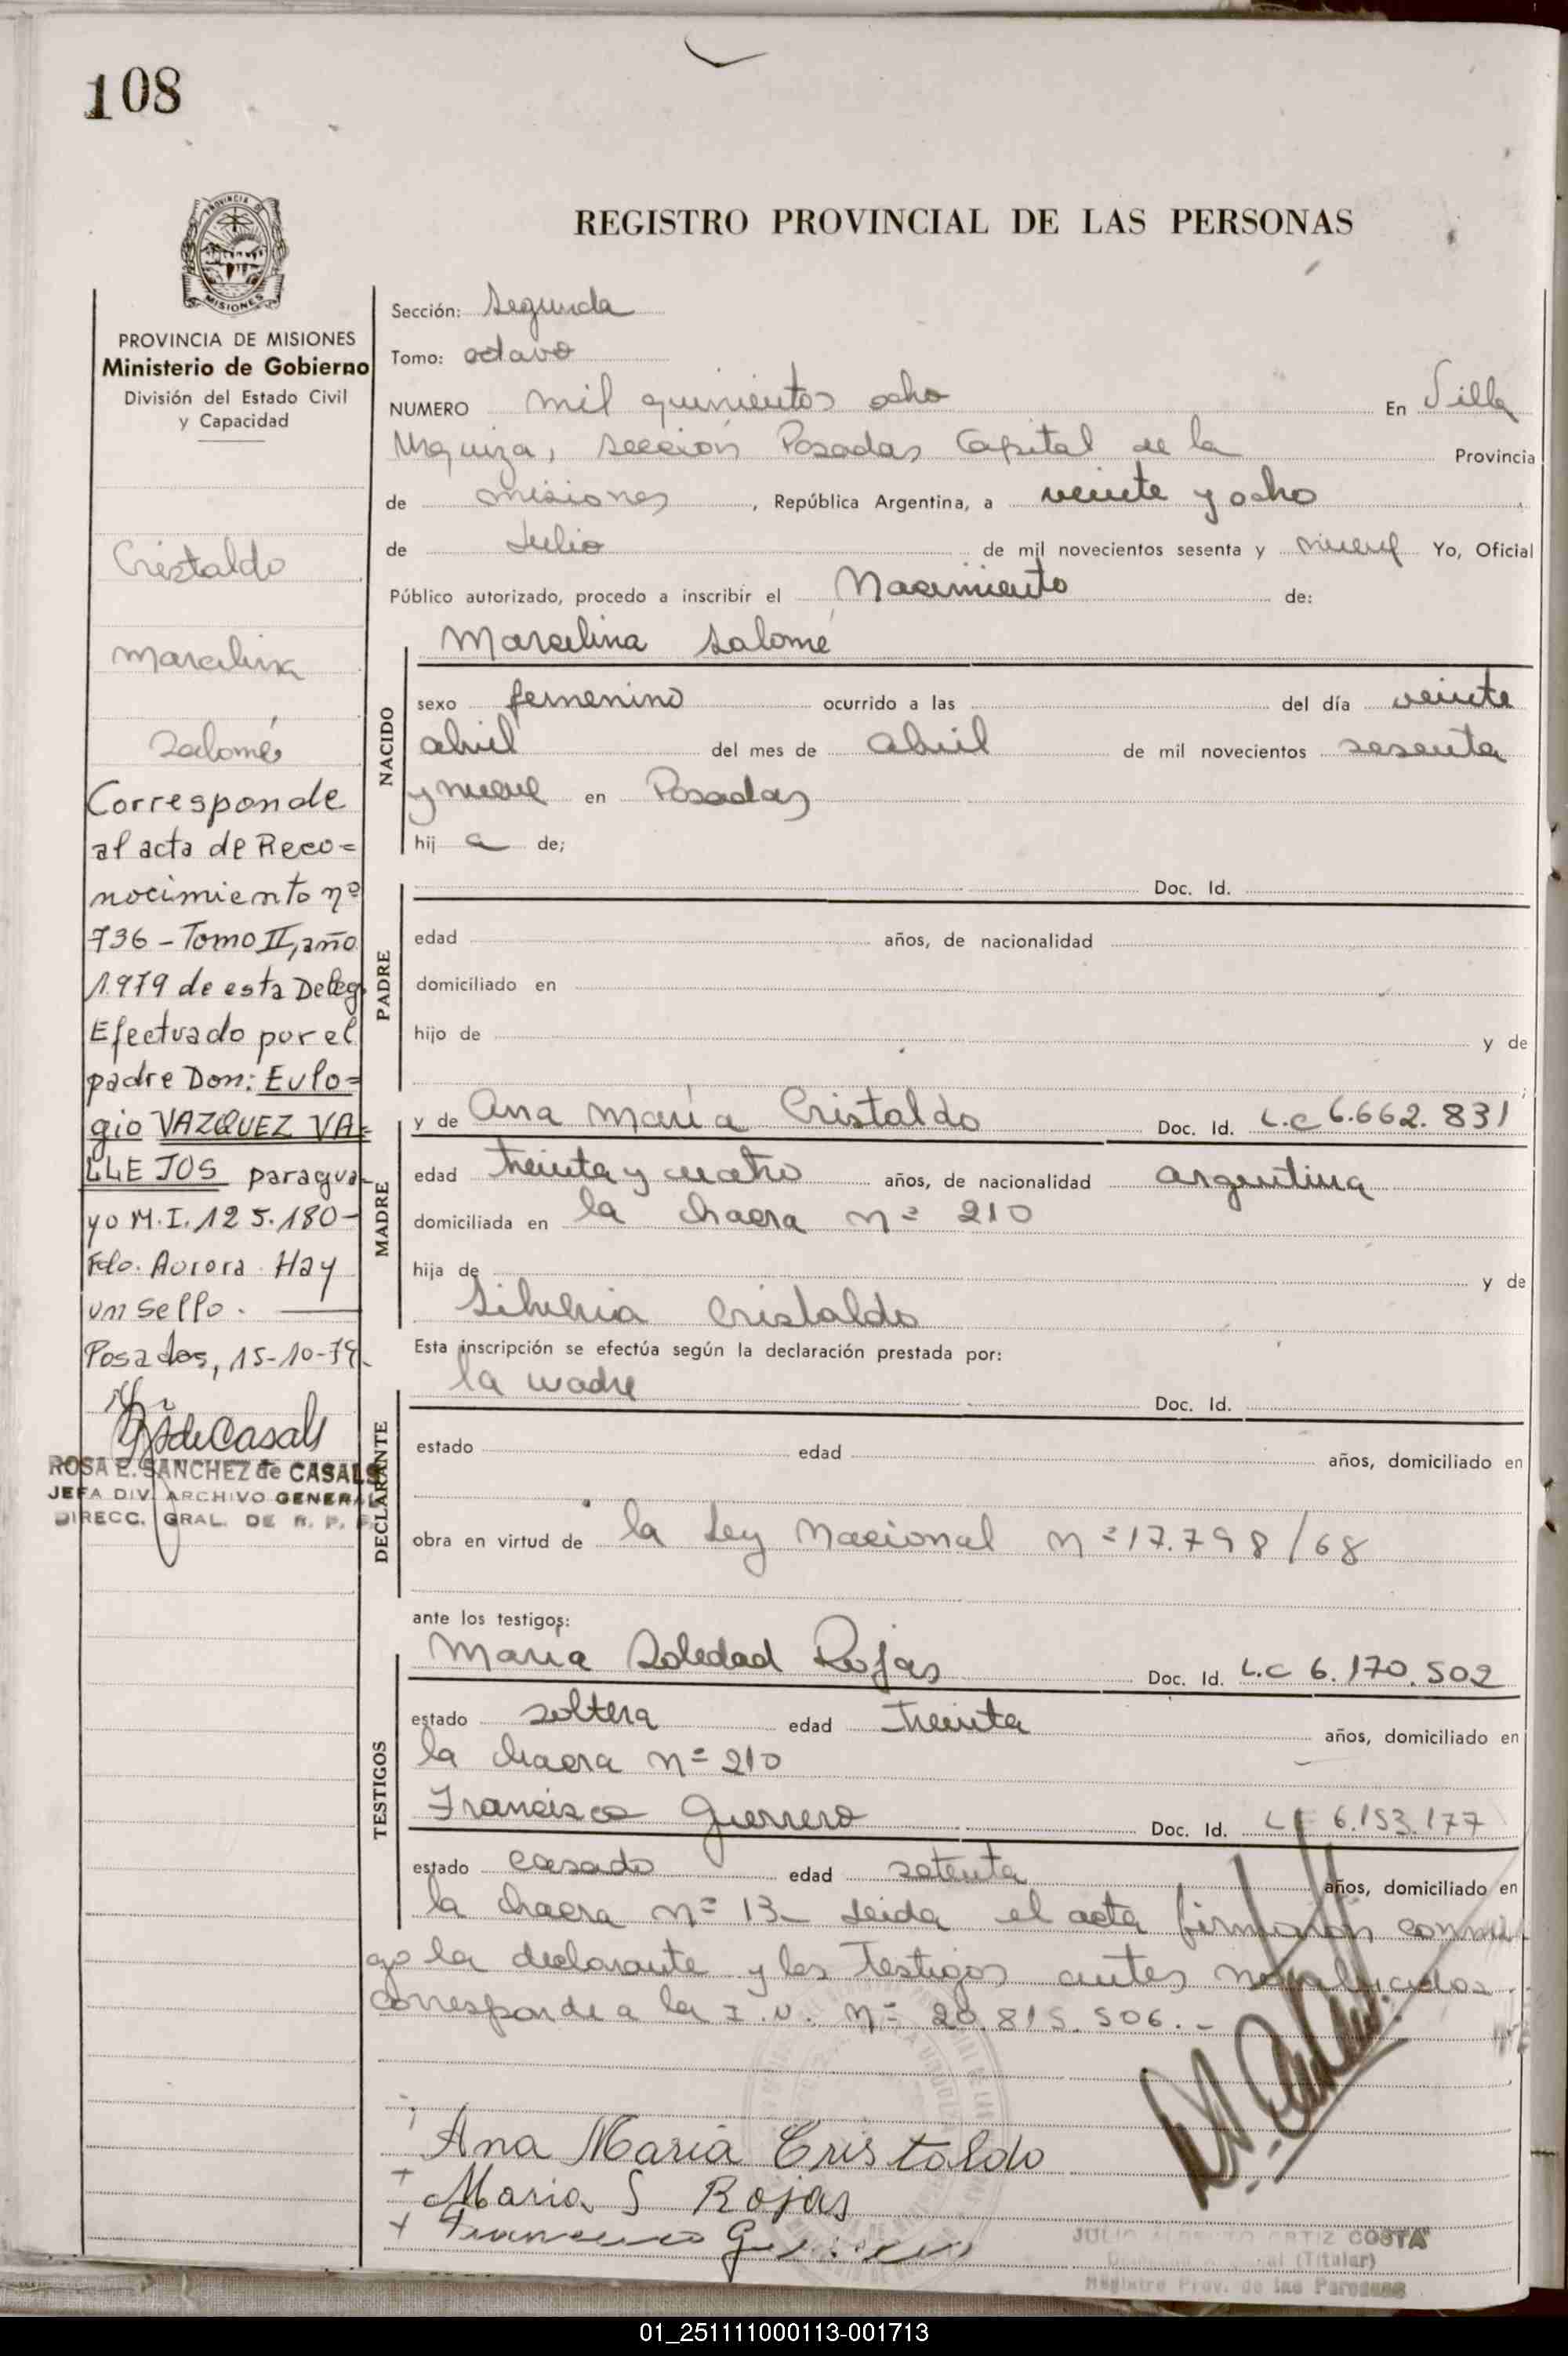 108
PROVINCIA DE
MISIONES
REGISTRO PROVINCIAL DE LAS PERSONAS
PROVINCIA DE MISIONES
Ministerio de Gobierno
División del Estado Civil
y Capacidad
Cristaldo
Marcelina
Salomé
Corresponde
al acta de Reco=
nocimiento nº
736 - Tomo II, año
1.979 de esta Deleg.
Efectuado por el
padre Don: Eulo=
gio VAZQUEZ VA=
LLEJOS paragua-
yo M.I. 125.180-
Fdo. Aurora Hay
un sello.
Posadas, 15-10-79.
deCasals
ROSA E. SANCHEZ de CASALS
JEFA DIV. ARCHIVO GENERAL
DIRECC. GRAL. DE R. P. P.
Sección: Segunda
Tomo: octavo
NUMERO mil quinientos ocho En Villa
Urquiza, sección Posadas Capital de la Provincia
de misiones, República Argentina, a veinte y ocho
de Julio de mil novecientos sesenta y nueve Yo, Oficial
Público autorizado, procedo a inscribir el Nacimiento de:
NACIDO
Marcelina Salomé
sexo femenino ocurrido a las del día veinte
abril del mes de abril de mil novecientos sesenta
y nueve en Posadas
hij a de;
PADRE
Doc. Id.
edad años, de nacionalidad
domiciliado en
hijo de y de
MADRE
y de Ana María Cristaldo Doc. Id. L.C 6.662.831
edad treinta y cuatro años, de nacionalidad argentina
domiciliada en la chacra nº 210
hija de y de
Silveria Cristaldo
Esta inscripción se efectúa según la declaración prestada por:
DECLARANTE
la madre Doc. Id.
estado edad años, domiciliado en
obra en virtud de la Ley Nacional nº 17.798/68
ante los testigos:
TESTIGOS
María Soledad Rojas Doc. Id. L.C 6.170.502
estado soltera edad treinta años, domiciliado en
la chacra nº 210
Francisco Guerrero Doc. Id. LE 6.153.177
estado casado edad setenta años, domiciliado en
la chacra nº 13- Leida el acta firmaron conmi
go la declarante y los testigos antes
corresponde a la I.N. nº 20.815.506.-
Ana Maria Cristaldo
Maria S Rojas
Francisco
JULIO ALBERTO ORTIZ COSTA
(Titular)
Registro Prov. de las Personas
01_251111000113-001713